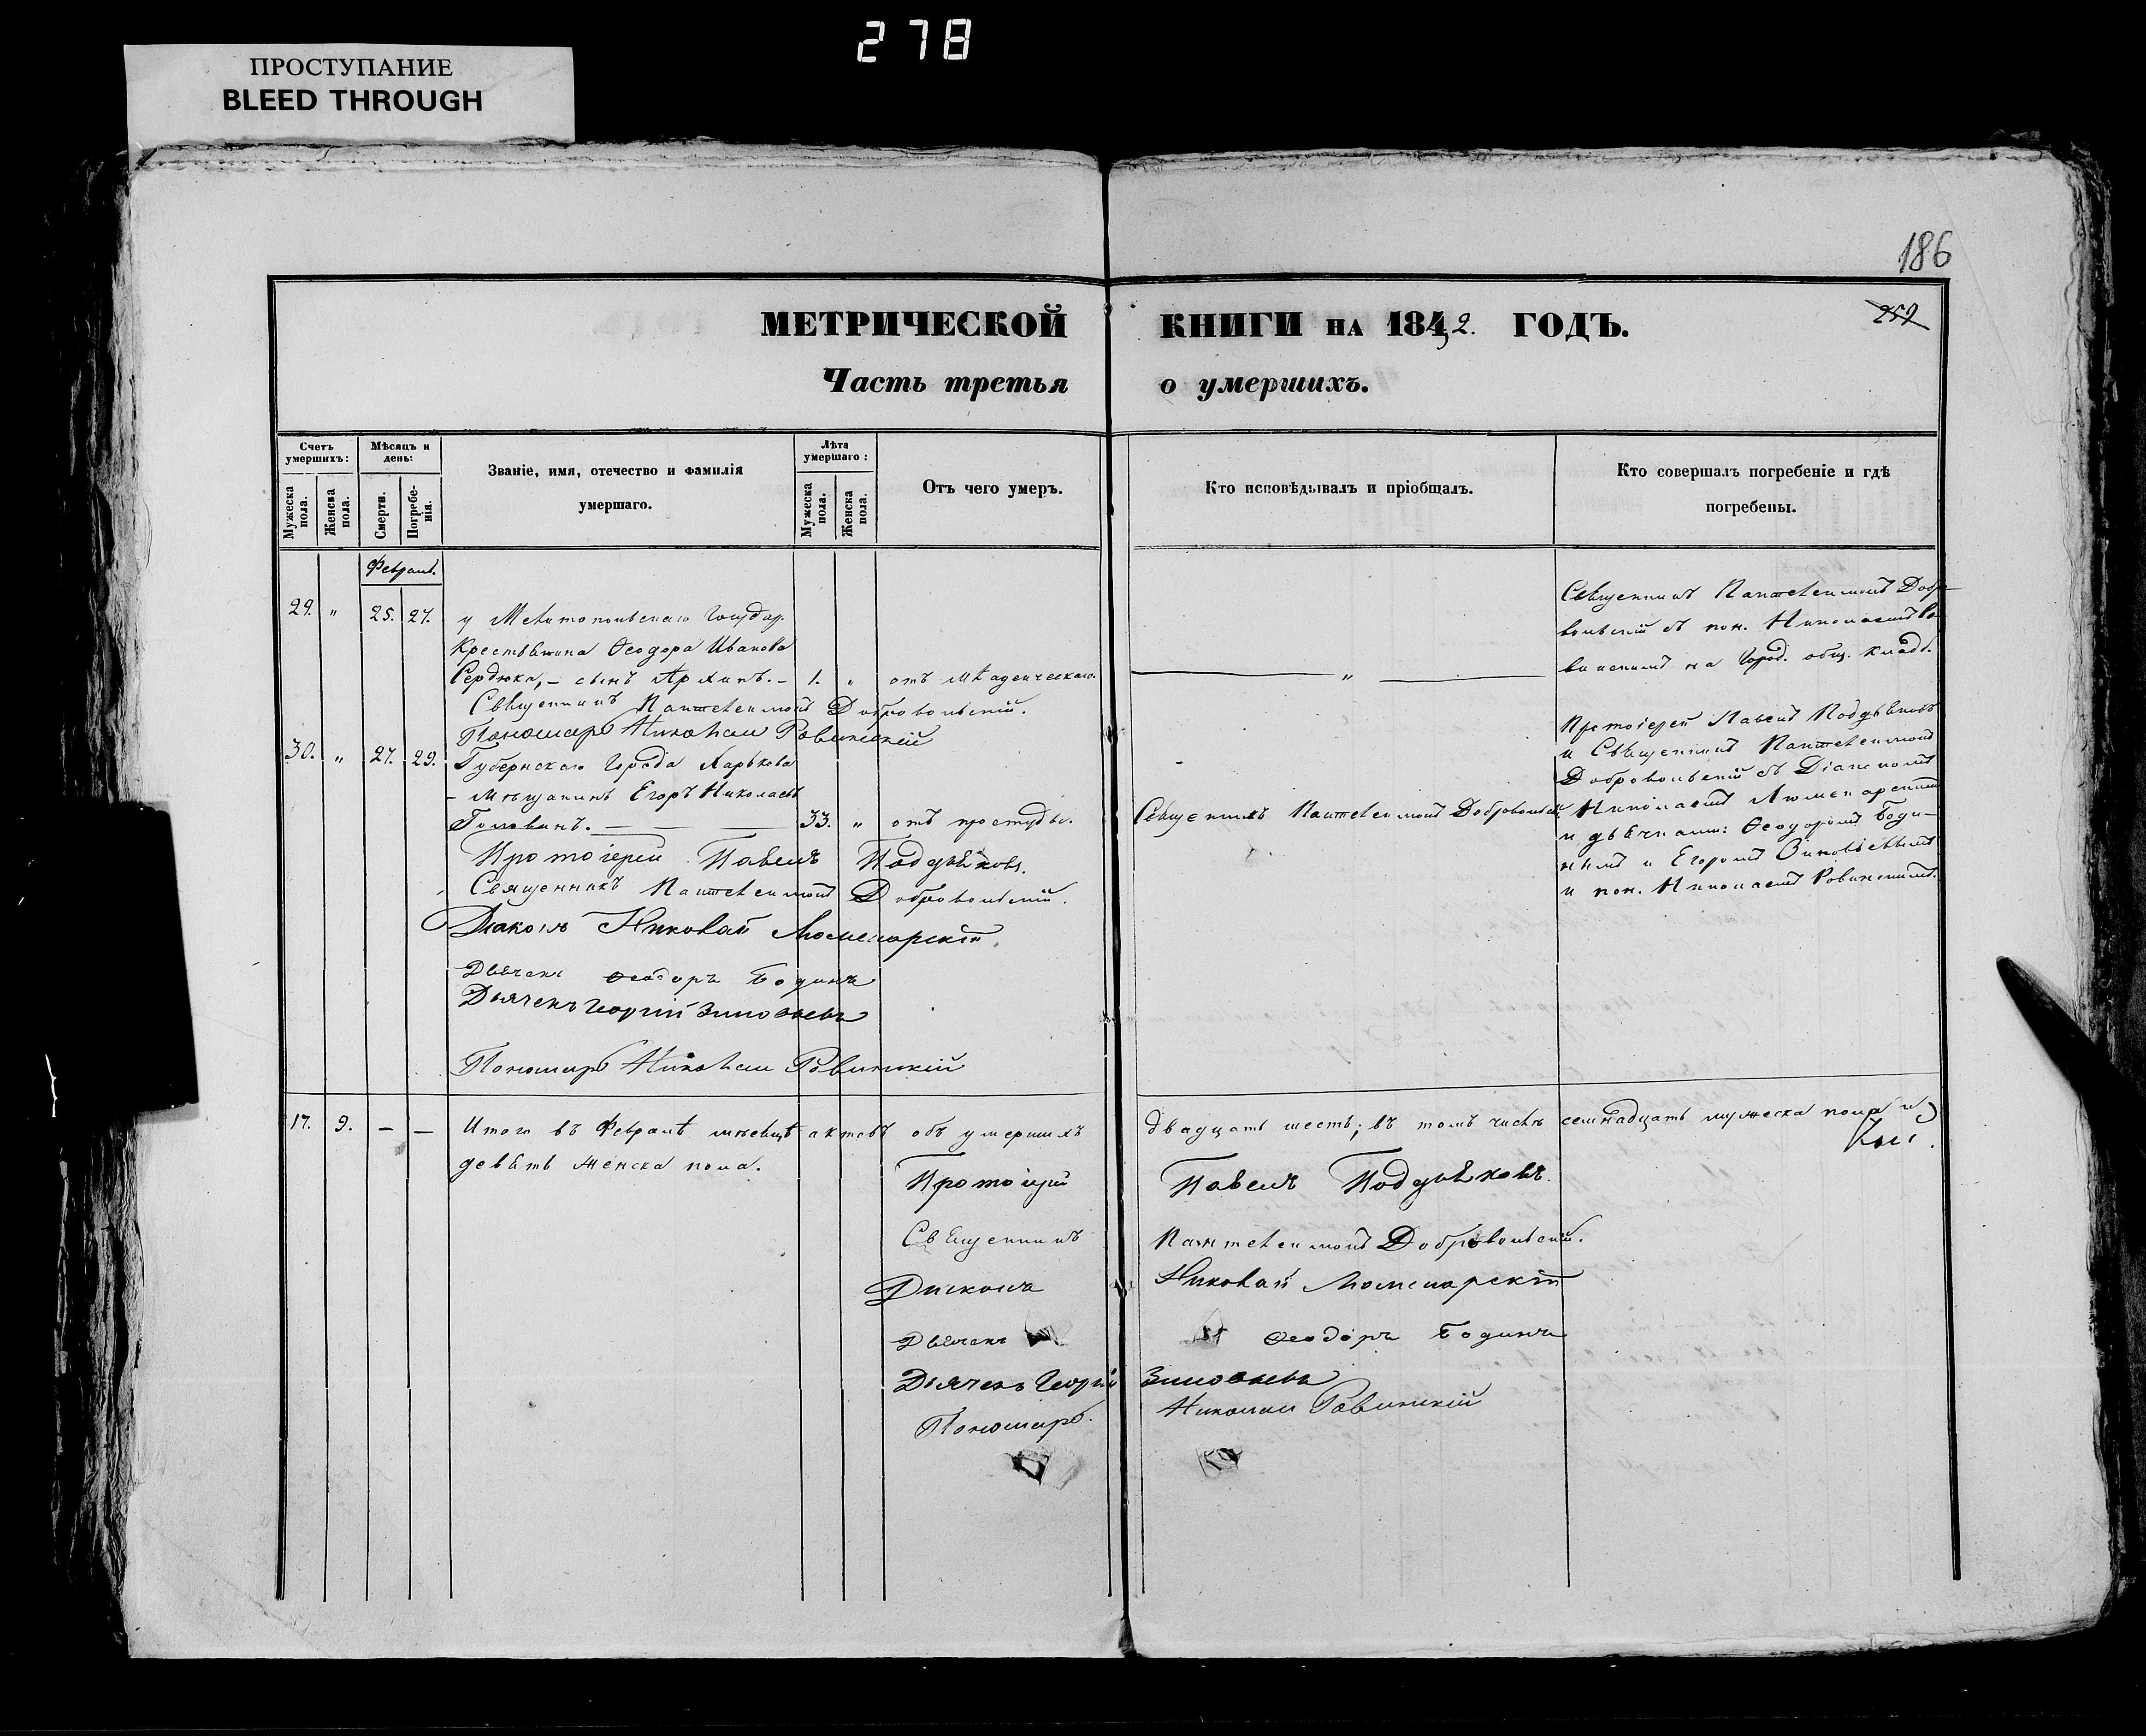 278
ПРОСТУПАНИЕ
BLEED THROUGH
186
МЕТРИЧЕСКОЙ КНИГИ НА 1842. ГОДЪ.
252
Часть третья о умершихъ.
Счетъ умершихъ:
Мужеска пола.
Женска пола.
Мѣсяцъ и день:
Смерти.
Погребенія.
Званіе, имя, отечество и фамилія
умершаго.
Лѣта умершаго:
Мужеска пола.
Женска пола.
Отъ чего умеръ.
Кто исповѣдывалъ и пріобщалъ.
Кто совершалъ погребеніе и гдѣ
погребены.
Февраль.
29. " 25. 27. у Мелитопольскаго Государ.
Крестьянина Ѳеодора Иванова
Сердюка, – сынъ Архипъ. – 1. " отъ младенческаго. "
Священникъ Пантелеимонъ Добро-
вольскій съ пон. Николаемъ Ро-
винскимъ на Город. общ. кладб.
Священникъ Пантелеимонъ Добровольскій.
Пономарь Николай Ровинскій
30. " 27. 29. Губернскаго Города Харькова
– мѣщанинъ Егоръ Николаевъ
Голованъ. 33. " отъ простуды. Священникъ Пантелеимонъ Добровольскій.
Протоіерей Павелъ Поддьяковъ
и Священникъ Пантелеимонъ
Добровольскій съ Діакономъ
Николаемъ
и дьячками: Ѳеодоромъ Боди-
нымъ и Егоромъ Зиновьевымъ
и пон. Николаемъ Ровинскимъ.
Протоіерей Павелъ Поддьяковъ.
Священникъ Пантелеимонъ Добровольскій.
Діаконъ Николай
Дьячекъ Ѳеодоръ Бодинъ
Дьячекъ Георгій Зиновьевъ
Пономарь Николай Ровинскій
17. 9. – – Итого въ Февралѣ мѣсяцѣ актовъ объ умершихъ двадцать шесть; въ томъ числѣ семнадцать мужеска пола и
девять женска пола.
Протоіерей Павелъ Поддьяковъ.
Священникъ Пантелеимонъ Добровольскій.
Діаконъ Николай
Дьячекъ Ѳеодоръ Бодинъ
Дьячекъ Георгій Зиновьевъ
Пономарь Николай Ровинскій